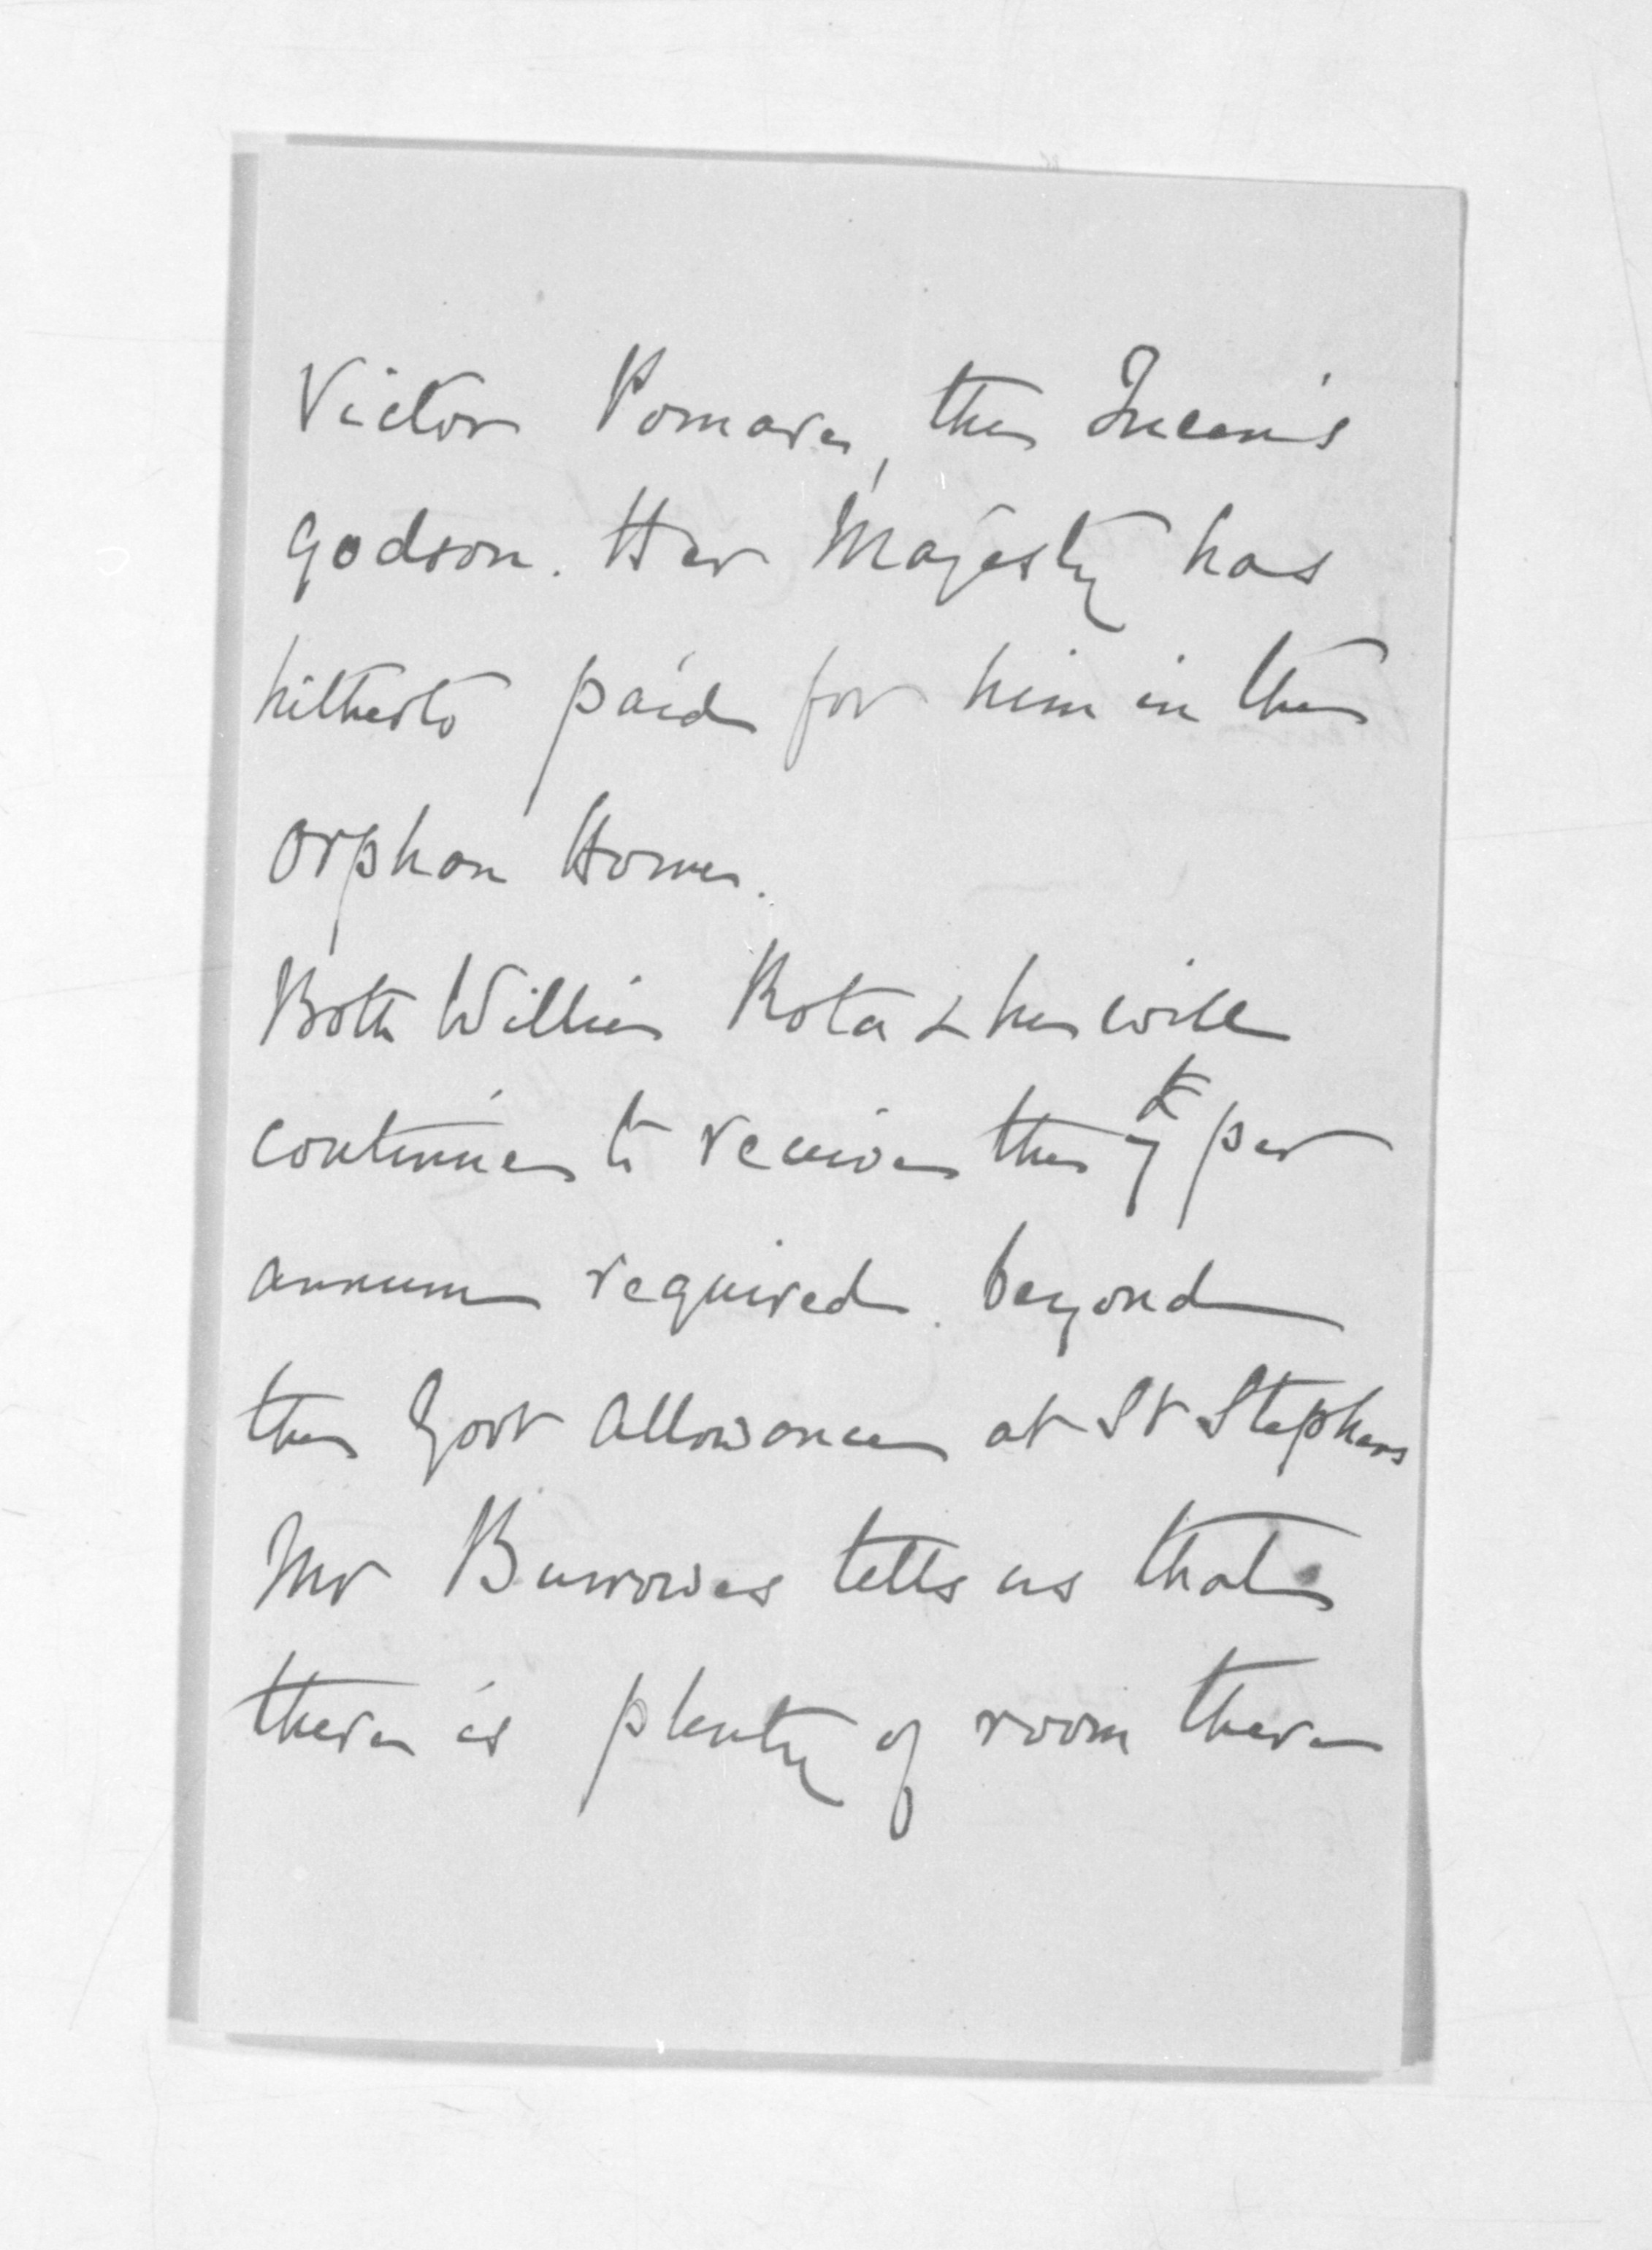 Victor Pomare, the Queen's
godson. Her Majesty has
hitherto paid for him in the
Orphan Home.
Both Willie Rota & he will
continue to receive the £7 per
annum required beyond
the Govt Allowance at St Stephens
Mr Burrowes tells us that
there is plenty of room there